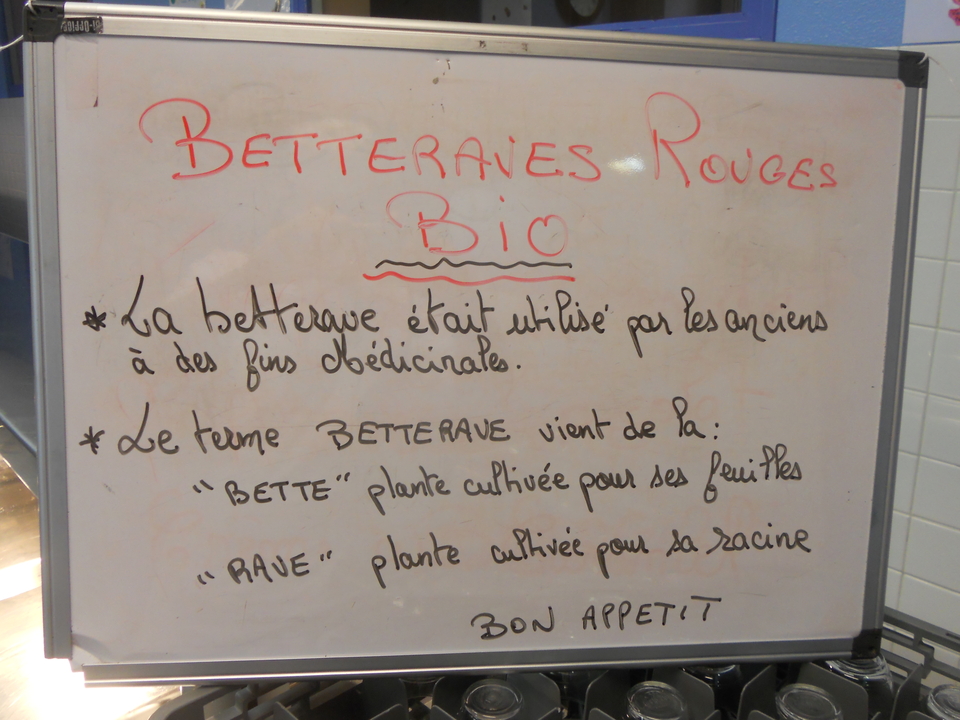 BETTERAVES ROUGES
BiO
* La betterave était utilisé par les anciens
à des fins Médicinales.
* Le terme BETTERAVE vient de la :
"BETTE" plante cultivée pour ses feuilles
"RAVE" plante cultivée pour sa racine
BON APPETIT